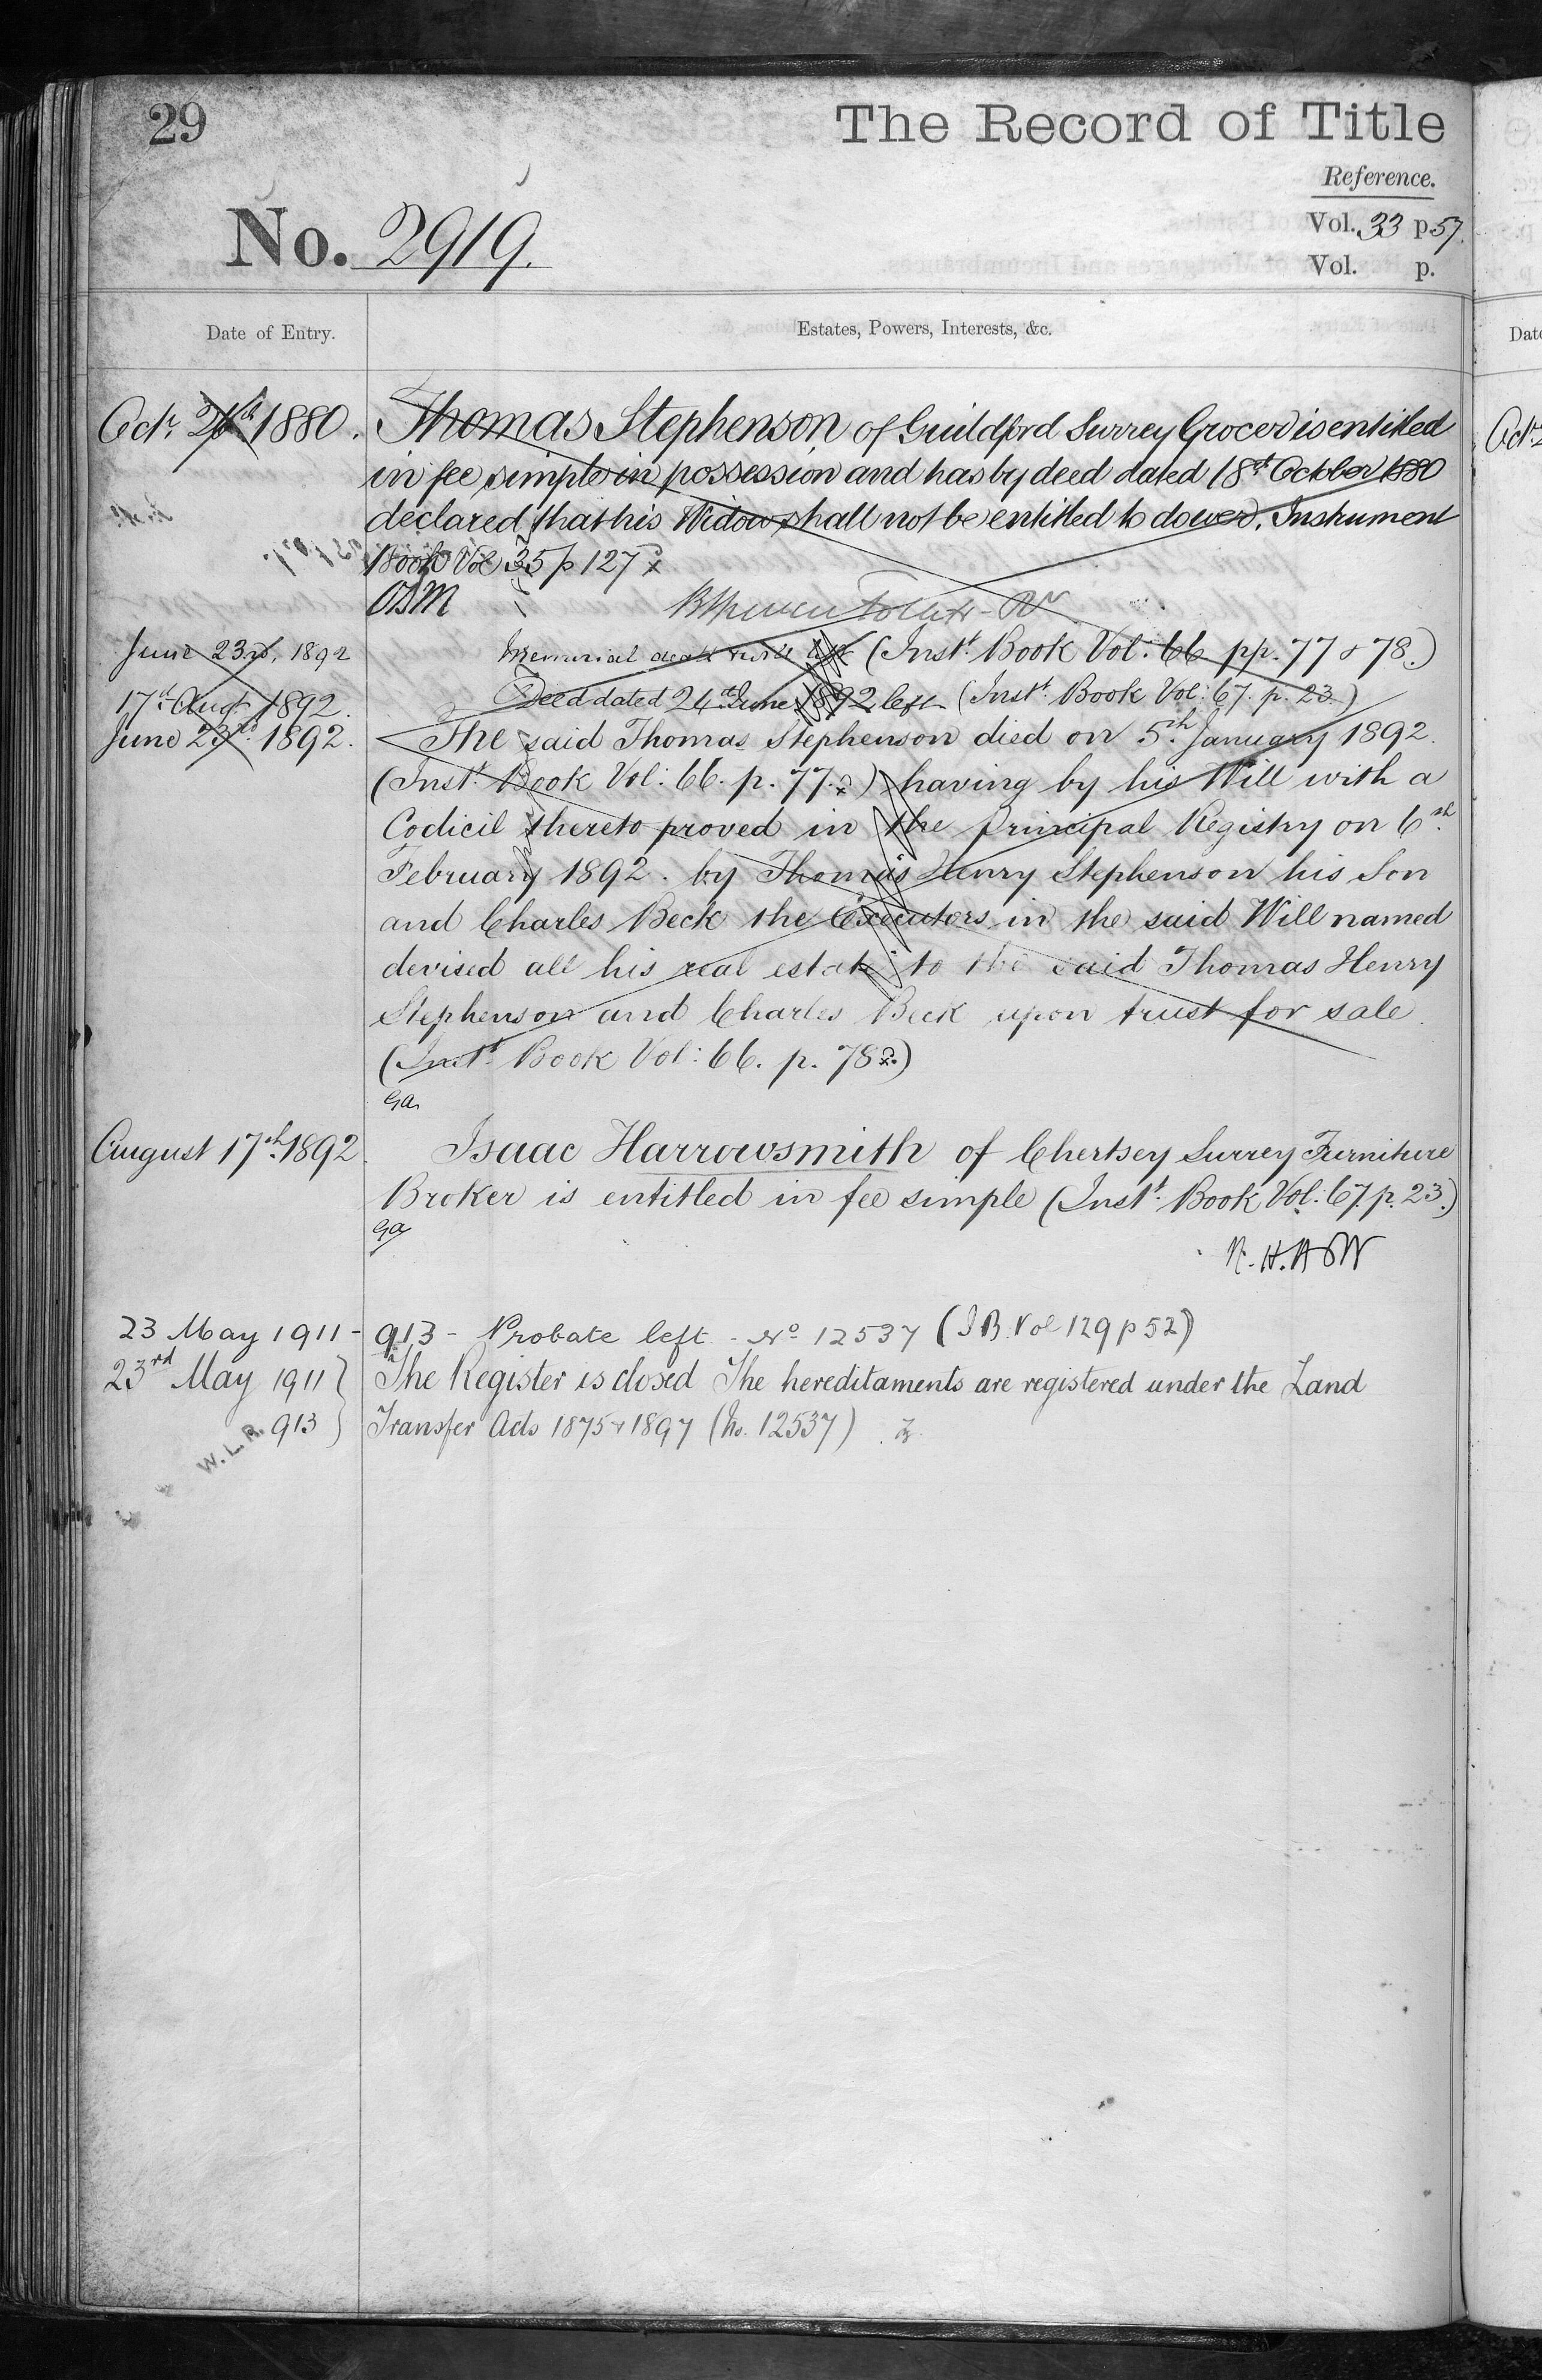 29
The Record of Title
Reference.
No. 2919.
Vol. 33 p 57.
Vol. p.
Date of Entry.
Estates, Powers, Interests, &c.
Date
Octr. 1880. Thomas Stephenson of Guildford Surrey Grocer is entitled
Oct
in fee simple in possession and has by deed dated 18th October 1880
declared that his Widow shall not be entitled to dower. Instrument
Book Vol 35 p 127
June 23rd, 1892 Memorial death & will left (Instt. Book Vol: 66 pp. 77 & 78.)
17th Augt 1892. Deed dated 24th June 1892 left (Instt. Book Vol: 67. p. 23.)
June 23rd. 1892. The said Thomas Stephenson died on 5th. January 1892.
(Instt. Book Vol: 66. p. 77.) having by his Will with a
Codicil thereto proved in the Principal Registry on 6th.
February 1892. by Thomas Henry Stephenson his Son
and Charles Beck the Executors in the said Will named
devised all his real estate to the said Thomas Henry
Stephenson and Charles Beck upon trust for sale.
(Instt. Book Vol: 66. p. 78.)
Ga
August 17th. 1892. Isaac Harrowsmith of Chertsey Surrey Furniture
Broker is entitled in fee simple (Instt. Book Vol: 67. p. 23.)
Ga
23 May 1911 - 913 - Probate left. - No 12537 (I B. Vol 129 p 52)
23rd May 1911 } The Register is closed The hereditaments are registered under the Land
913 } Transfer Acts 1875 & 1897 (No. 12537)
W.L.R.